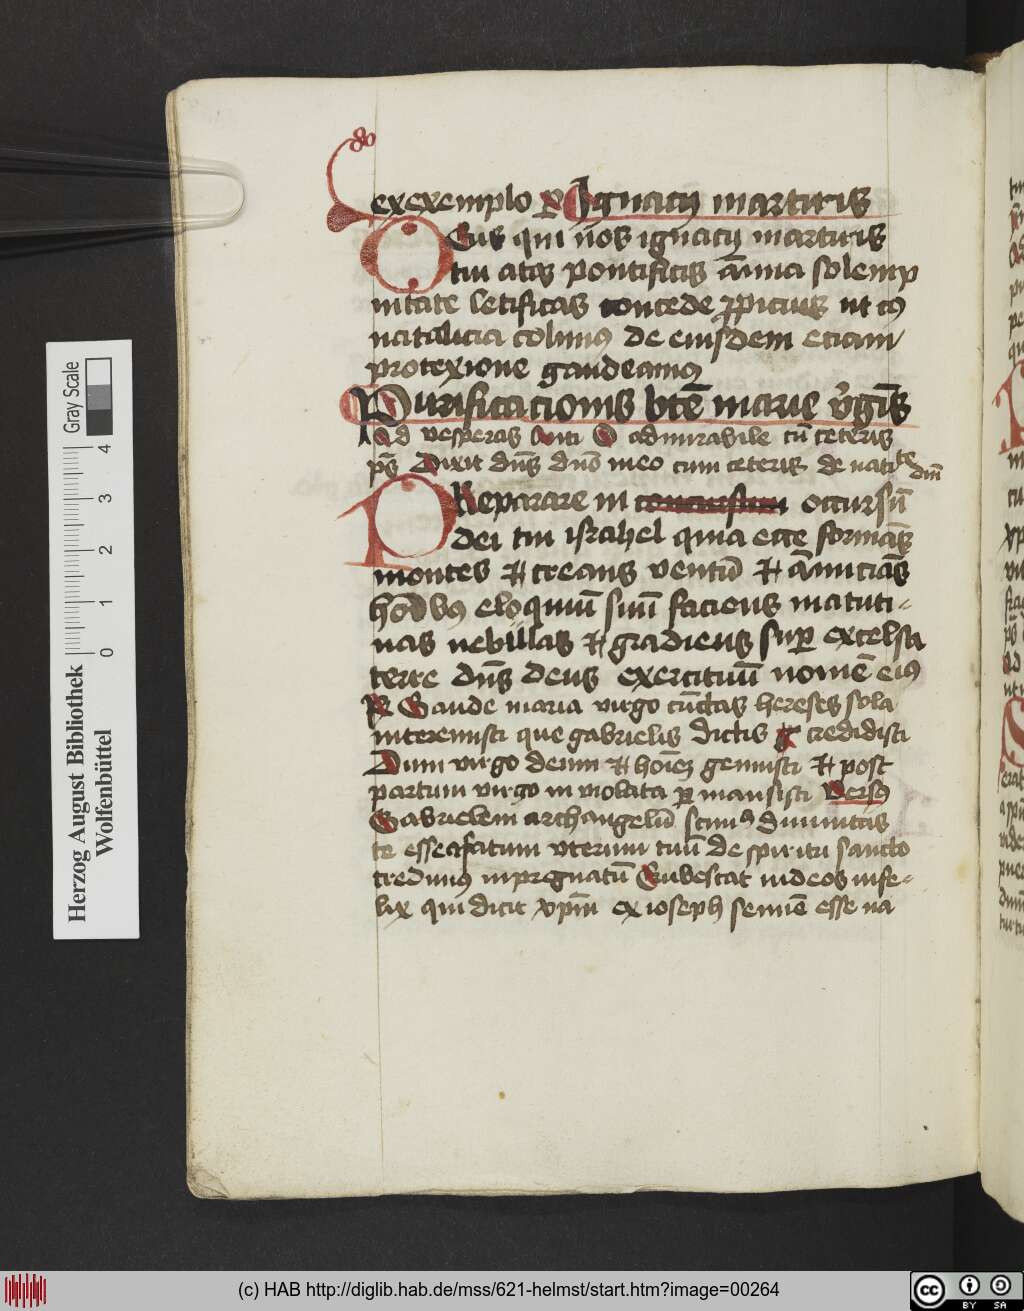 exexemplo ꝑ Ignacij martiris
Deus qui nos ignacij martiris
tui atqꝫ pontificis ānua solemp
nitate letificas concede ꝓpicius ut cꝰ
natalicia colimꝰ de eiusdem eciam
protexione gaudeamꝰ
Purificacionis bt̄e marie v̓gīs
Ad vesperas Anti O admirabile cū ceteris
pš Dixit dn̄s dn̄o meo cum ceteris de natite
dn̄i
PReparare in occursū
dei tui israhel quia ecce formās
montes et creans ventū et ānuciās
hōībꝰ eloquiū suū faciens matuti-
nas nebulas et gradiens suꝑ excelsa
terre dn̄s deus exercituū nomē eiꝰ
R Gaude maria virgo cūctas hereses sola
interemisti que gabrielis dictis credidisti
Dum virgo deum et hoīeꝫ genuisti et post
partum virgo in violata ꝑ mansisti versꝰ
Gabrielem archangelū scimꝰ diuinitus
te esse afatum vterum tuū de spiritu sancto
credimꝰ inpregnatū Erubescat iudeos infe-
lix qui dicit xp̄m ex ioseph semīe esse na
Herzog August Bibliothek
Wolfenbüttel
0 1 2 3 4
Gray Scale
(c) HAB http://diglib.hab.de/mss/621-helmst/start.htm?image=00264
cc BY SA